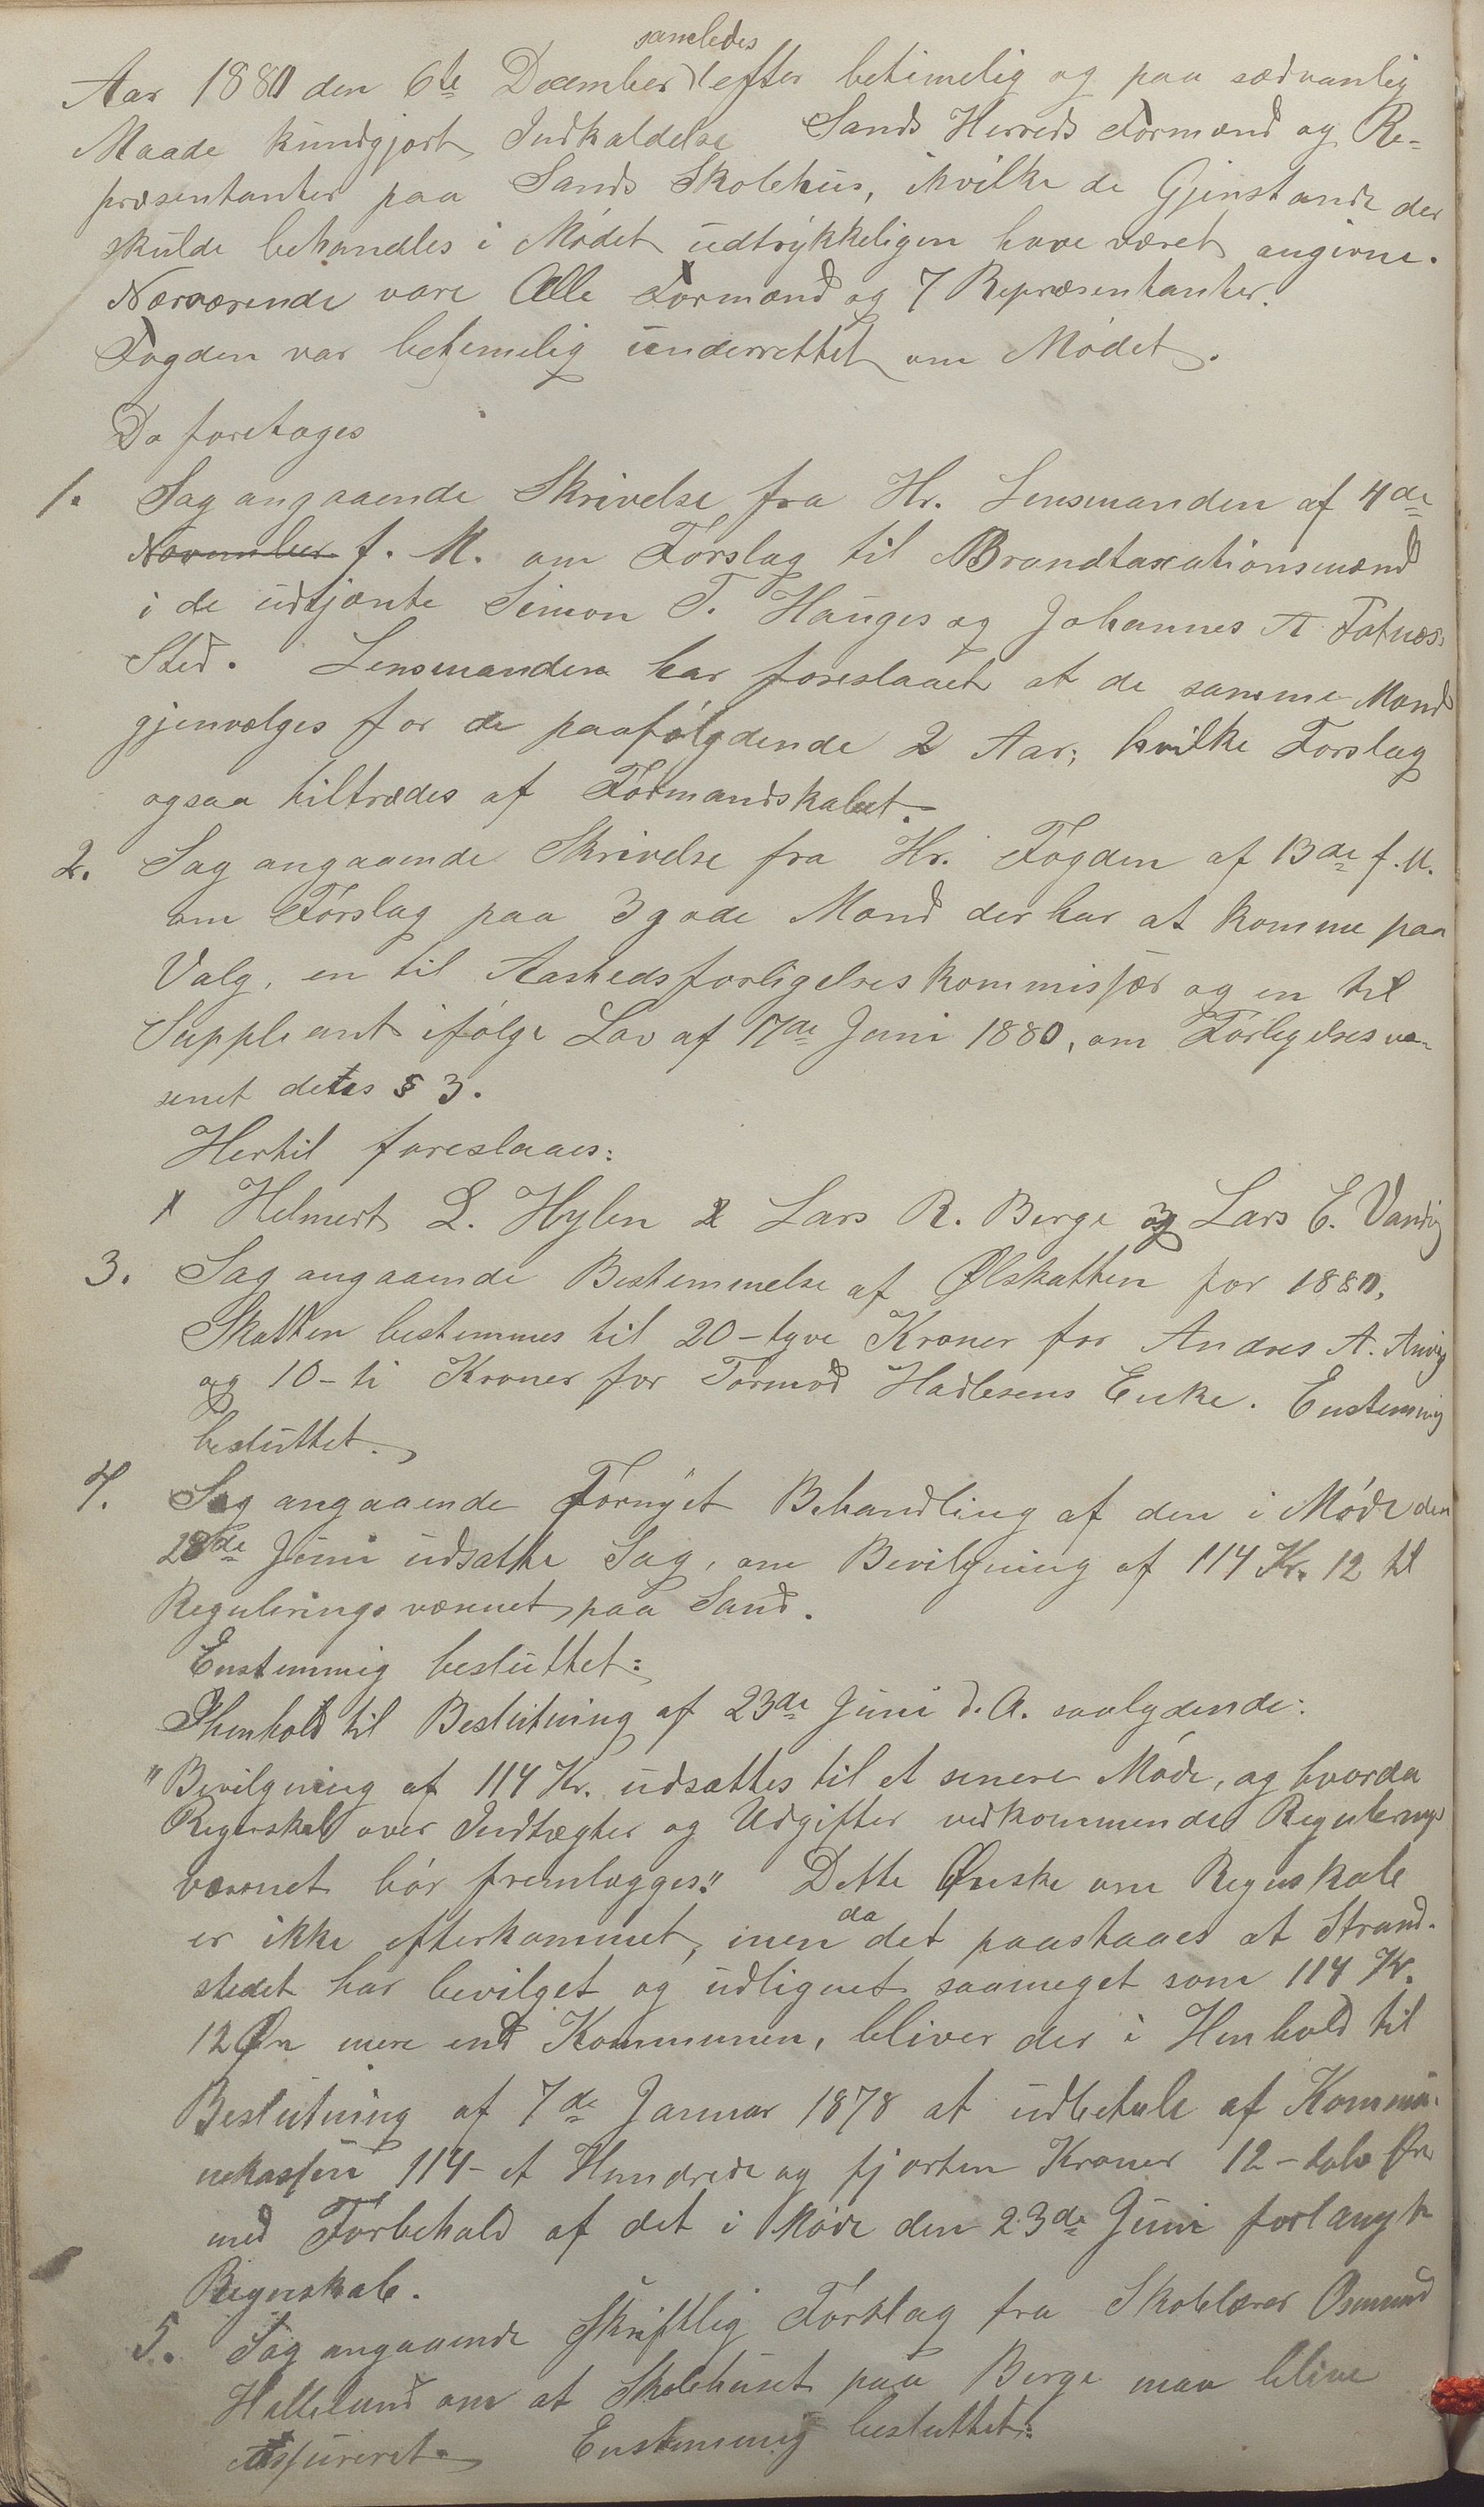 samledes
Aar 1880 den 6te December efter betimelig og paa sædvanlig
Maade kundgjort Indkaldelse Sands Herreds Formænd og Re-
præsentanter paa Sands Skolehus, ihvilke de Gjenstande der
skulde behandles i Mødet udtrykkeligen have været angivne.
Nærværende vare Alle Formænd og 7 Repræsentanter.
Fogden var betimelig underrettet om Mødet.
Da foretages
1. Sag angaaende Skrivelse fra Hr. Lensmanden af 4de
November f. M. om Forslag til Brandtaxationsmænd
i de udtjente Simon T. Hauges og Johannes A Fatnæs
Sted. Lensmanden har foreslaaet at de samme Mænd
gjenvælges for de paafølgdende 2 Aar; hvilke Forslag
ogsaa tiltrædes af Formandskabet.
2. Sag angaaende Skrivelse fra Hr. Fogden af 13de f. M.
om Forslag paa 3 gode Mænd der har at komme paa
Valg, en til Aastedsforligelseskommissær og en til
Suppleant ifølge Lov af 17de Juni 1880, om Forligelsesvæ-
senet dets § 3.
Hertil foreslaaes:
1 Helmert L. Hylen 2 Lars R. Berge 3 Lars E. Vandvig
3. Sag angaaende Bestemmelse af Ølskatten for 1880.
Skatten bestemmes til 20 - tyve Kroner for Andres A. Anvig
og 10 - ti Kroner for Tormod Hadlesens Enke. Enstemmig
besluttet.
4. Sag angaaende Fornyet Behandling af den i Møde den
23de Juni udsatte Sag, om Bevilgning af 114 Kr. 12 til
Reguleringsvæsenet paa Sand.
Enstemmig besluttet:
Ihenhold til Beslutning af 23de Juni d. A. saalydende:
"Bevilgning af 114 Kr. udsættes til et senere Møde, og hvorda
Regnskab over Indtægter og Udgifter vedkommende Regulerings
væsenet bør fremlægges." Dette Ønske om Regnskab
da
er ikke efterkommet, men det paastaaes at Strand-
stedet har bevilget og udlignet saameget som 114 Kr.
12 Øre mere end Kommunen, bliver der i Henhold til
Beslutning af 7de Januar 1878 at udbetale af Kommu-
nekassen 114 - et Hundrede og fjorten Kroner 12 - tolv Øre
med Forbehold af det i Møde den 23de Juni forlangte
Regnskab.
5. Sag angaaende Skriftlig Forslag fra Skolelærer Osmund
Helleland om at Skolehuset paa Berge maa blive
Assureret. Enstemmig besluttet: